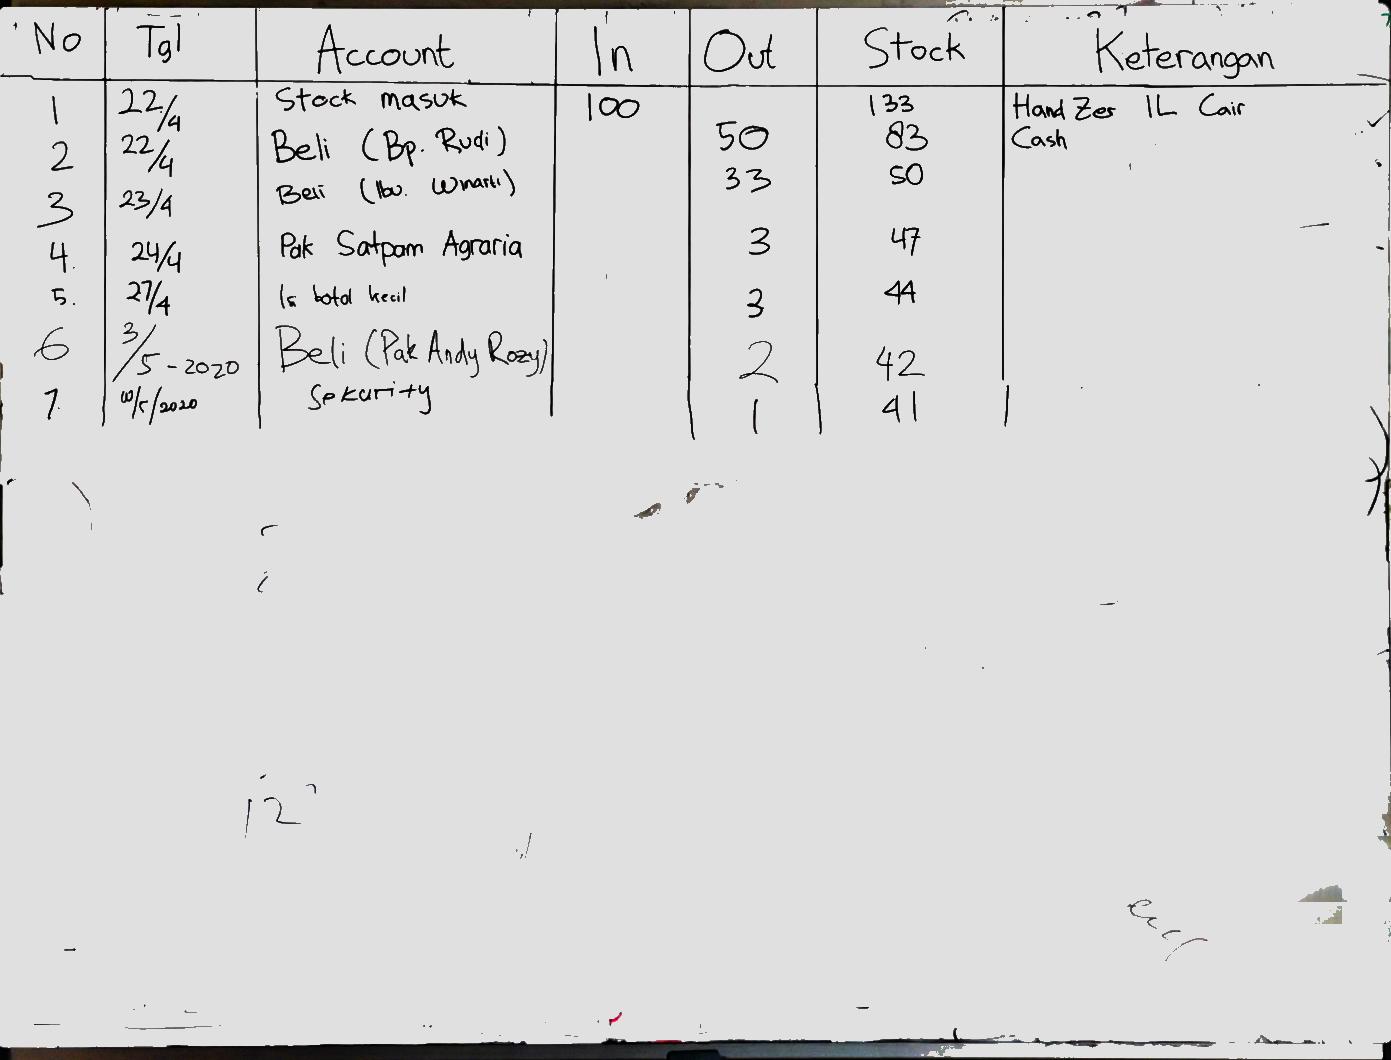 No Tgl Account In Out Stock Keterangan
1 22/4 Stock masuk 100 133 Hand Zer 1L Cair
2 22/4 Beli (Bp. Rudi) 50 83 Cash
3 23/4 Beli (Ibu. Winarti) 33 50
4. 24/4 Pak Satpam Agraria 3 47
5. 27/4 botol kecil 3 44
6 3/5-2020 Beli (Pak Andy Rozy) 2 42
7. /5/2020 Sekurity 1 41
12